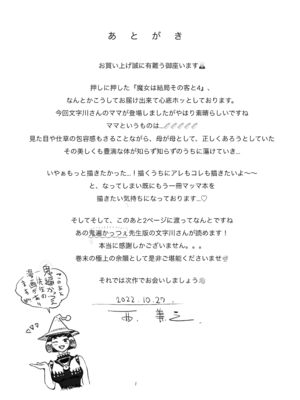 あとがき
お買い上げ誠に有難う御座います
押しに押した『魔女は結局その客と4』、
なんとかこうしてお届け出来て心底ホッとしております。
今回文字川さんのママが登場しましたがやはり素晴らしいですね
ママというものは…
見た目や仕草の包容感もさることながら、母が母として、正しくあろうとしていた
その美しくも豊満な体が知らず知らずのうちに蕩けていき…
いやぁもっと描きたかった…！描くうちにアレもコレも描きたいよ〜〜
と、なってしまい既にもう一冊マッマ本を
描きたい気持ちになっております…♡
そしてそして、このあと2ページに渡ってなんとですね
あの鬼遍かっつぇ先生版の文字川さんが読めます！
本当に感謝しかございません。。。
巻末の極上の余韻として是非ご堪能くださいませ
それでは次作でお会いしましょう
2022.10.27.
このあと
鬼遍かっつぇ
先生の
漫画があり
ます